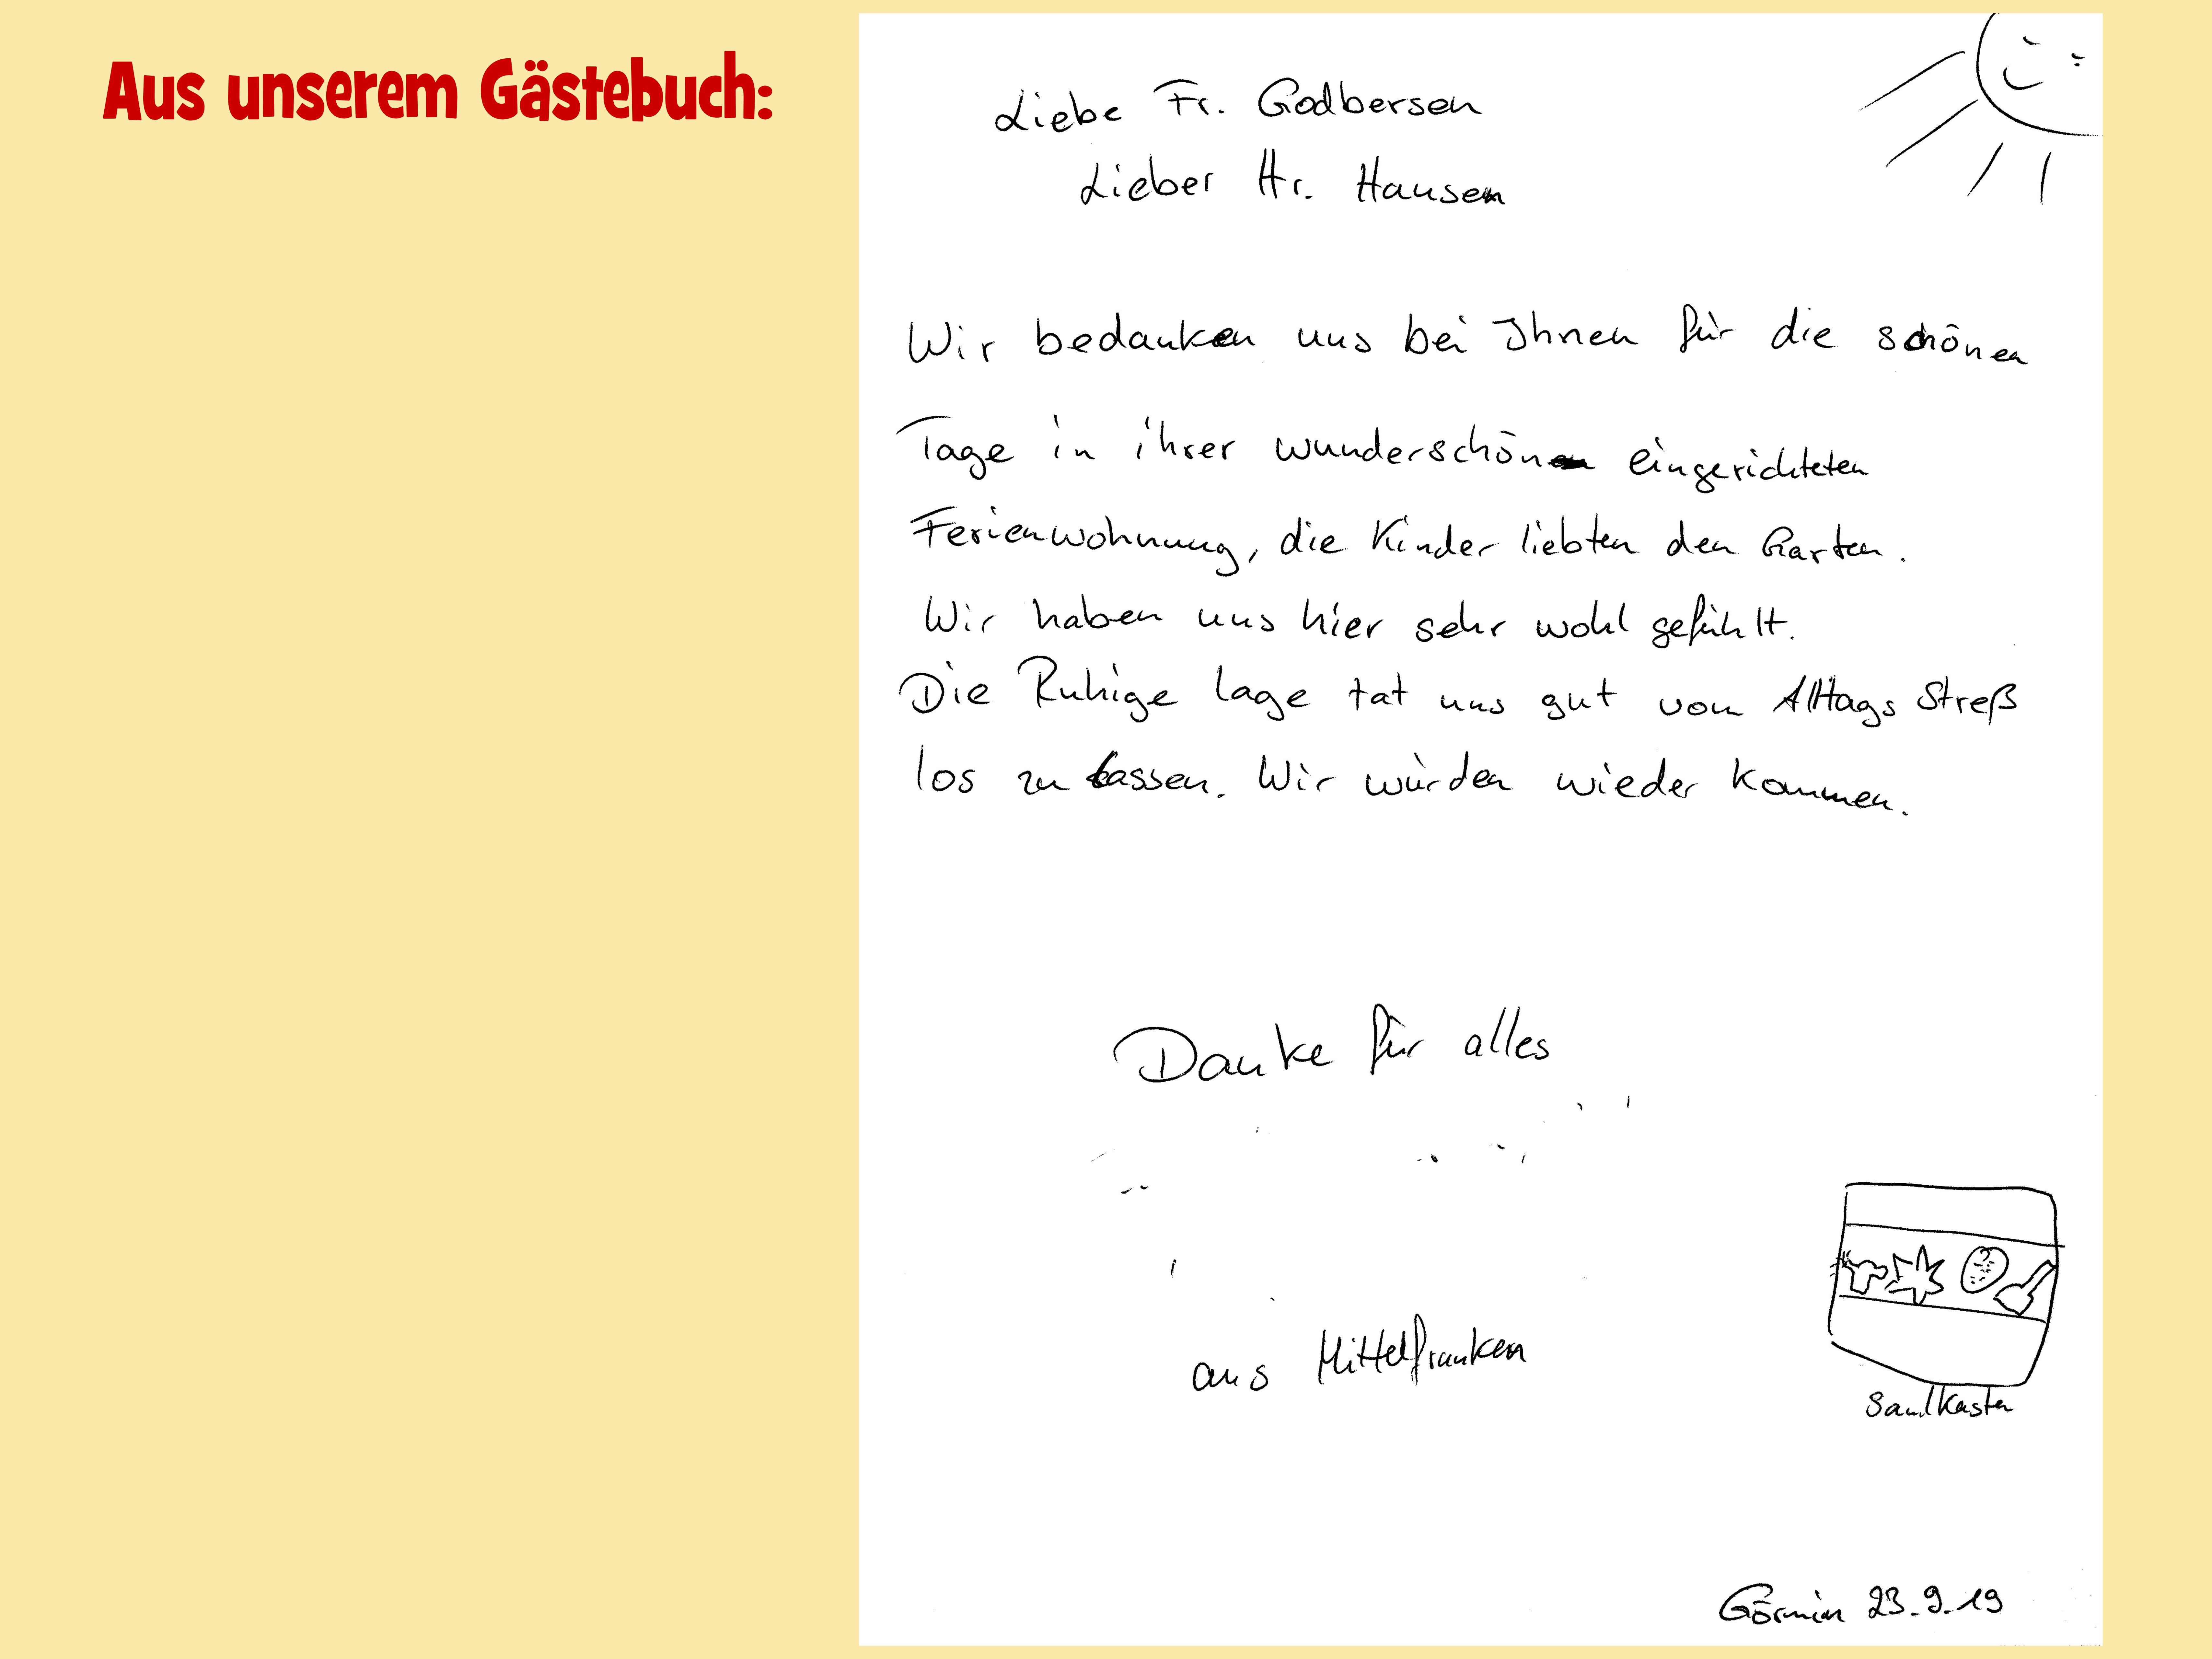 Aus unserem Gästebuch:
Liebe Fr. Godbersen
Lieber Hr. Hausen
Wir bedanken uns bei Ihnen für die schönen
Tage in ihrer wunderschön eingerichteten
Ferienwohnung, die Kinder liebten den Garten.
Wir haben uns hier sehr wohl gefühlt.
Die Ruhige Lage tat uns gut vom Alltags Streß
los zu lassen. Wir würden wieder kommen.
Danke für alles
aus Mittelfranken
Sandkasten
Görmin 23.9.19